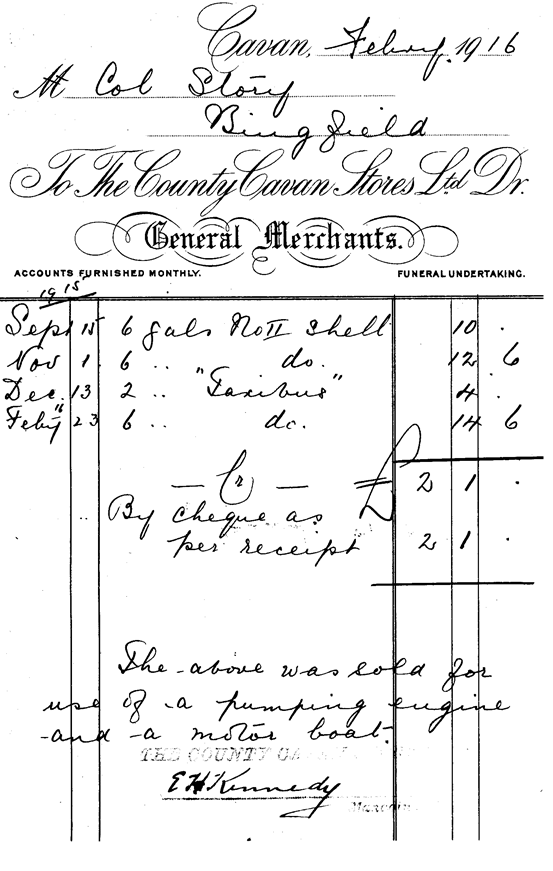 Cavan, Febry. 1916
M Col Story
Bingfield
To The County Cavan Stores Ltd Dr.
General Merchants.
ACCOUNTS FURNISHED MONTHLY. FUNERAL UNDERTAKING.
1915
Sept 15 6 gals No II Shell 10 .
Nov 1 6 .. do. 12 6
Dec. 13 2 .. "Taxibus" 4 .
Feby 16 23 6 .. do. 14 6
— Cr — £ 2 1 .
By cheque as
per receipt 2 1 .
The above was sold for
use of a pumping engine
and a motor boat.
THE COUNTY CA
E H Kennedy